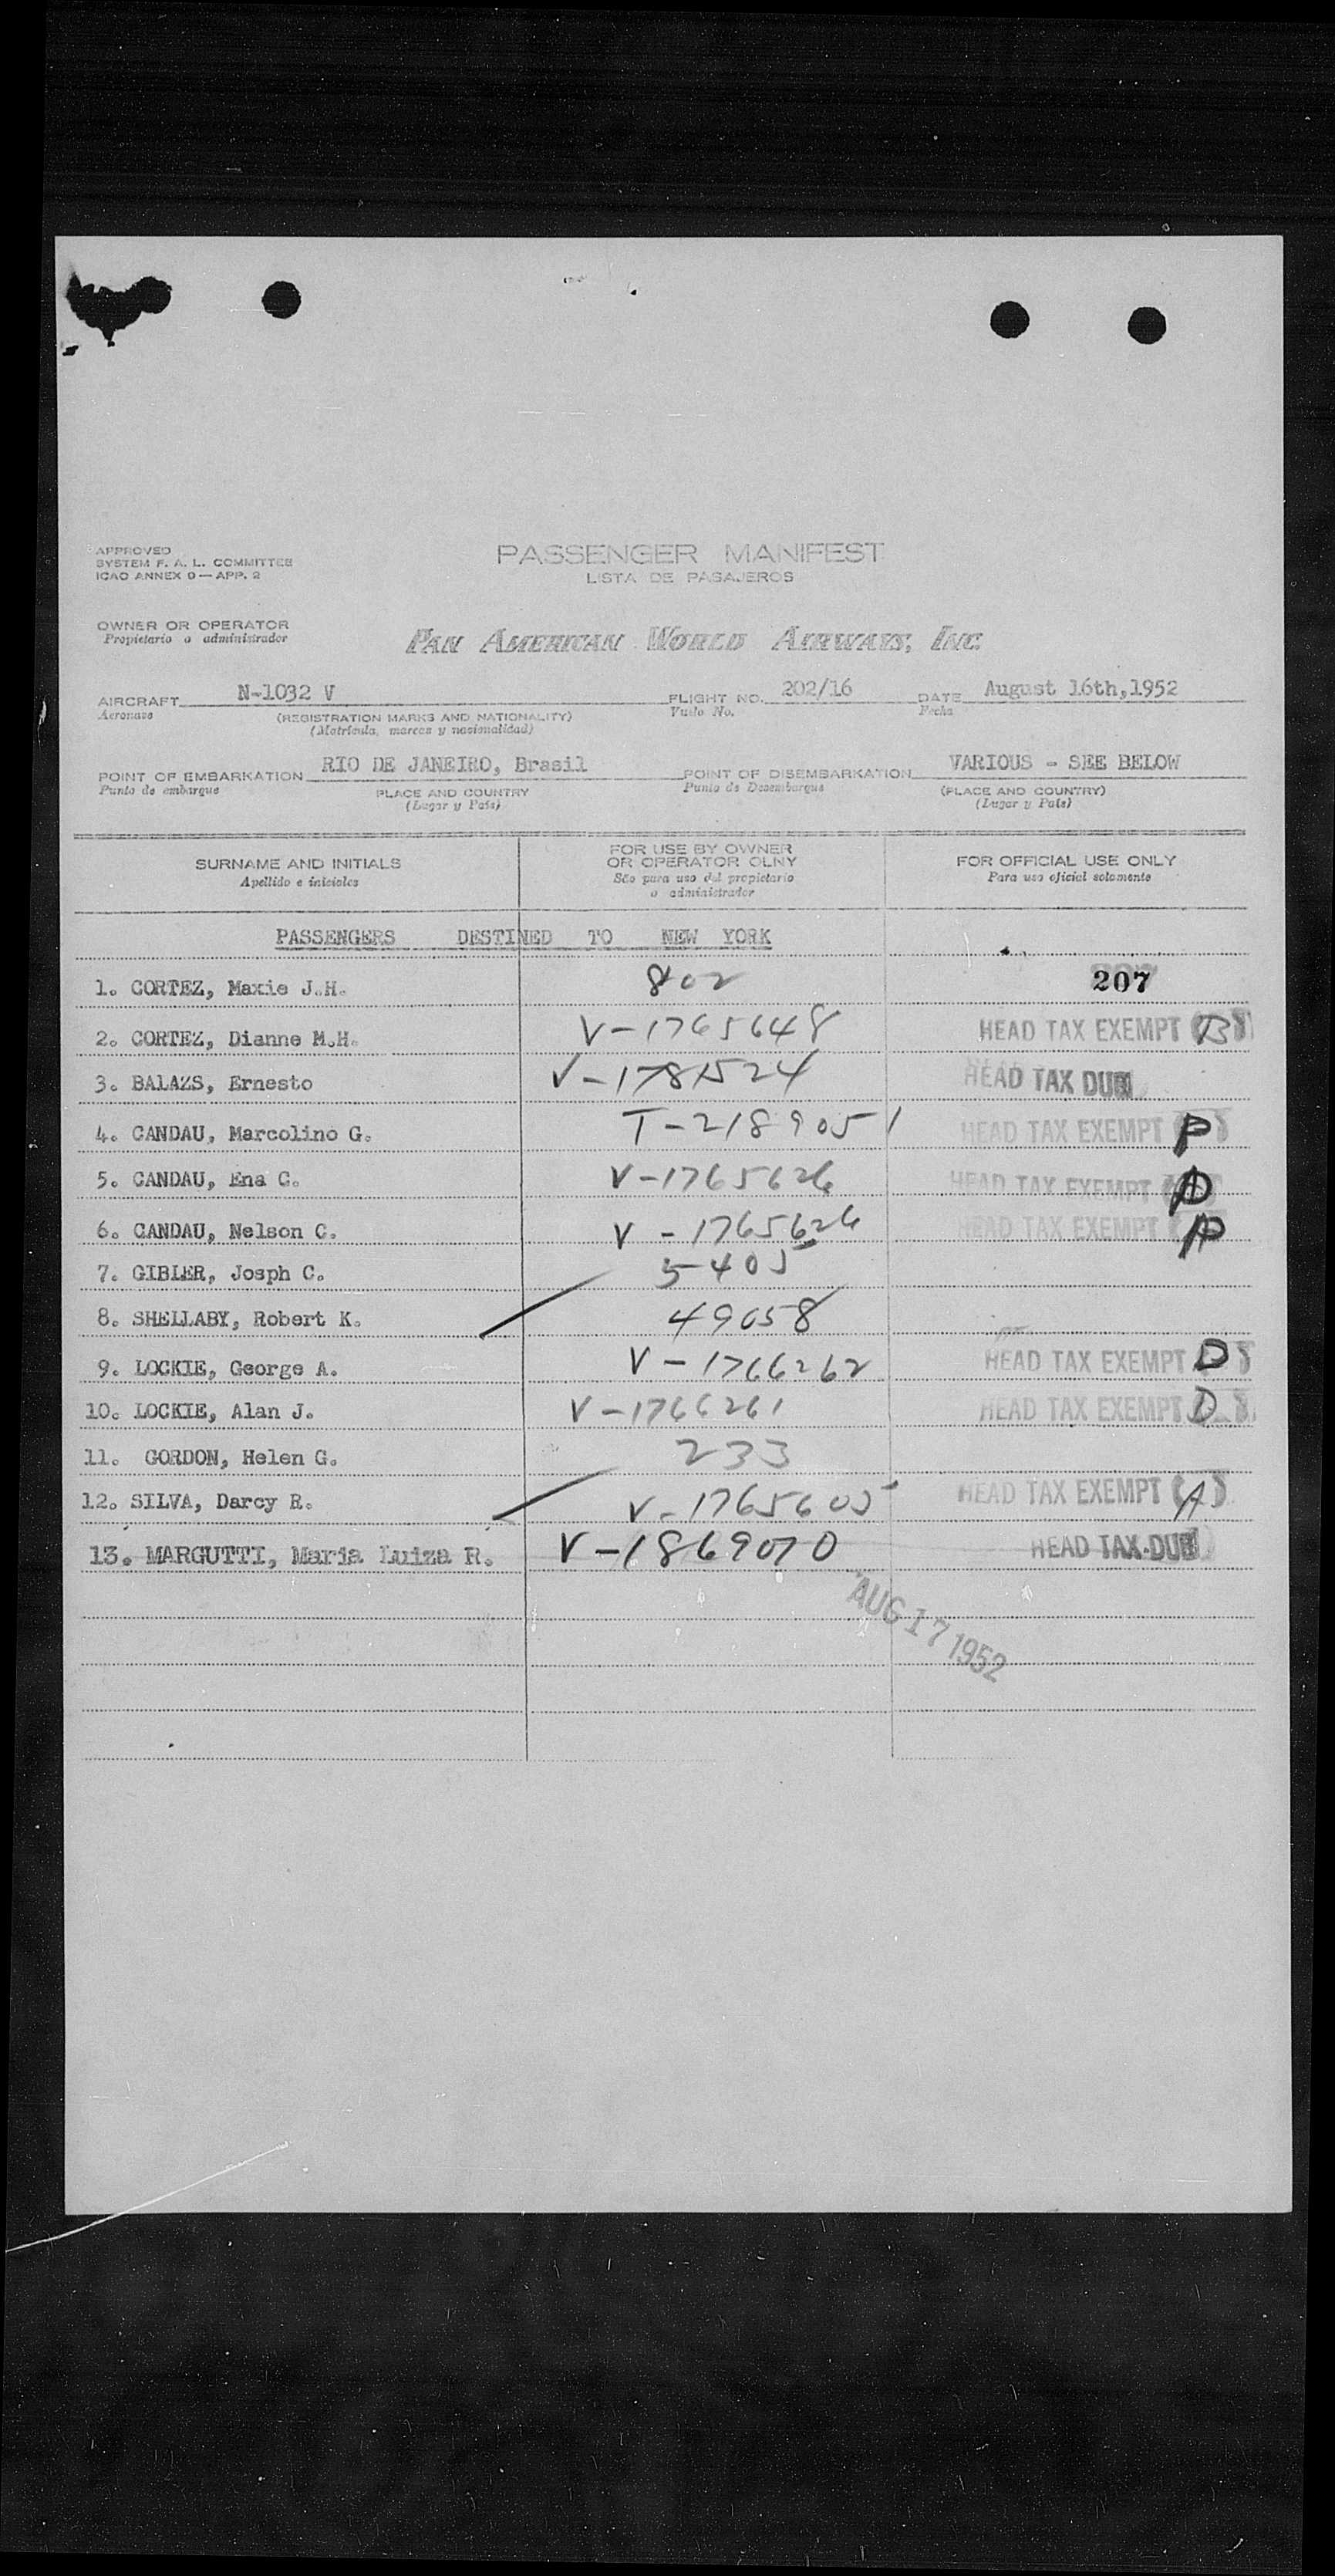 APPROVED
SYSTEM F. A. L. COMMITTEE
ICAO ANNEX 9 — APP. 2
PASSENGER MANIFEST
LISTA DE PASAJEROS
OWNER OR OPERATOR
Propietario o administrador
PAN AMERICAN WORLD AIRWAYS, INC
AIRCRAFT N-1032 V FLIGHT NO. 202/16 DATE August 16th,1952
Aeronave (REGISTRATION MARKS AND NATIONALITY) Vuelo No. Fecha
(Matrícula, marcas y nacionalidad)
POINT OF EMBARKATION RIO DE JANEIRO, Brasil POINT OF DISEMBARKATION VARIOUS - SEE BELOW
Punto de embarque PLACE AND COUNTRY Punto de Desembarque (PLACE AND COUNTRY)
(Lugar y País) (Lugar y País)
SURNAME AND INITIALS
Apellido e iniciales
FOR USE BY OWNER
OR OPERATOR OLNY
Sòo para uso del propietario
o administrador
FOR OFFICIAL USE ONLY
Para uso oficial solamente
PASSENGERS DESTINED TO NEW YORK
1. CORTEZ, Maxie J.H. 802 207
2. CORTEZ, Dianne M.H. V-1765648 HEAD TAX EXEMPT B
3. BALAZS, Ernesto V-1781524 HEAD TAX DUE
4. CANDAU, Marcolino G. T-2189051 HEAD TAX EXEMPT P
5. CANDAU, Ena C. V-1765626 HEAD TAX EXEMPT
6. CANDAU, Nelson C. V-1765626 HEAD TAX EXEMPT
7. GIBLER, Josph C. 5405
8. SHELLABY, Robert K. 49058
9. LOCKIE, George A. V-1766262 HEAD TAX EXEMPT D
10. LOCKIE, Alan J. V-1766261 HEAD TAX EXEMPT D
11. GORDON, Helen G. 233
12. SILVA, Darcy R. V-1765605 HEAD TAX EXEMPT A
13. MARGUTTI, Maria Luiza R. V-1869070 HEAD TAX DUE
AUG 17 1952